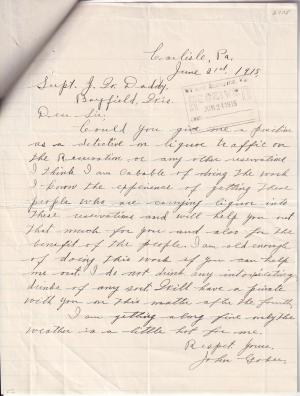 Carlisle, Pa.
June 21st, 1915
Supt. J. W. Daddy,
Bayfield, Wis.
Dear Sir:
Could you give me a position
as a detective on liquor traffic on
the Reservation, or any other reservations
I think I am capable of doing the work
I know the experience of getting these
people who are carrying liquor into
these reservations and will help you out
that much for you and also for the
benefit of the people. I am old enough
of doing this work if you can help
me out. I do not drink any intoxicating
drinks of any sort. I will have a private
with you on this matter after the fourth
I am getting along fine only the
weather is a little hot for me.
Respct. yours,
John